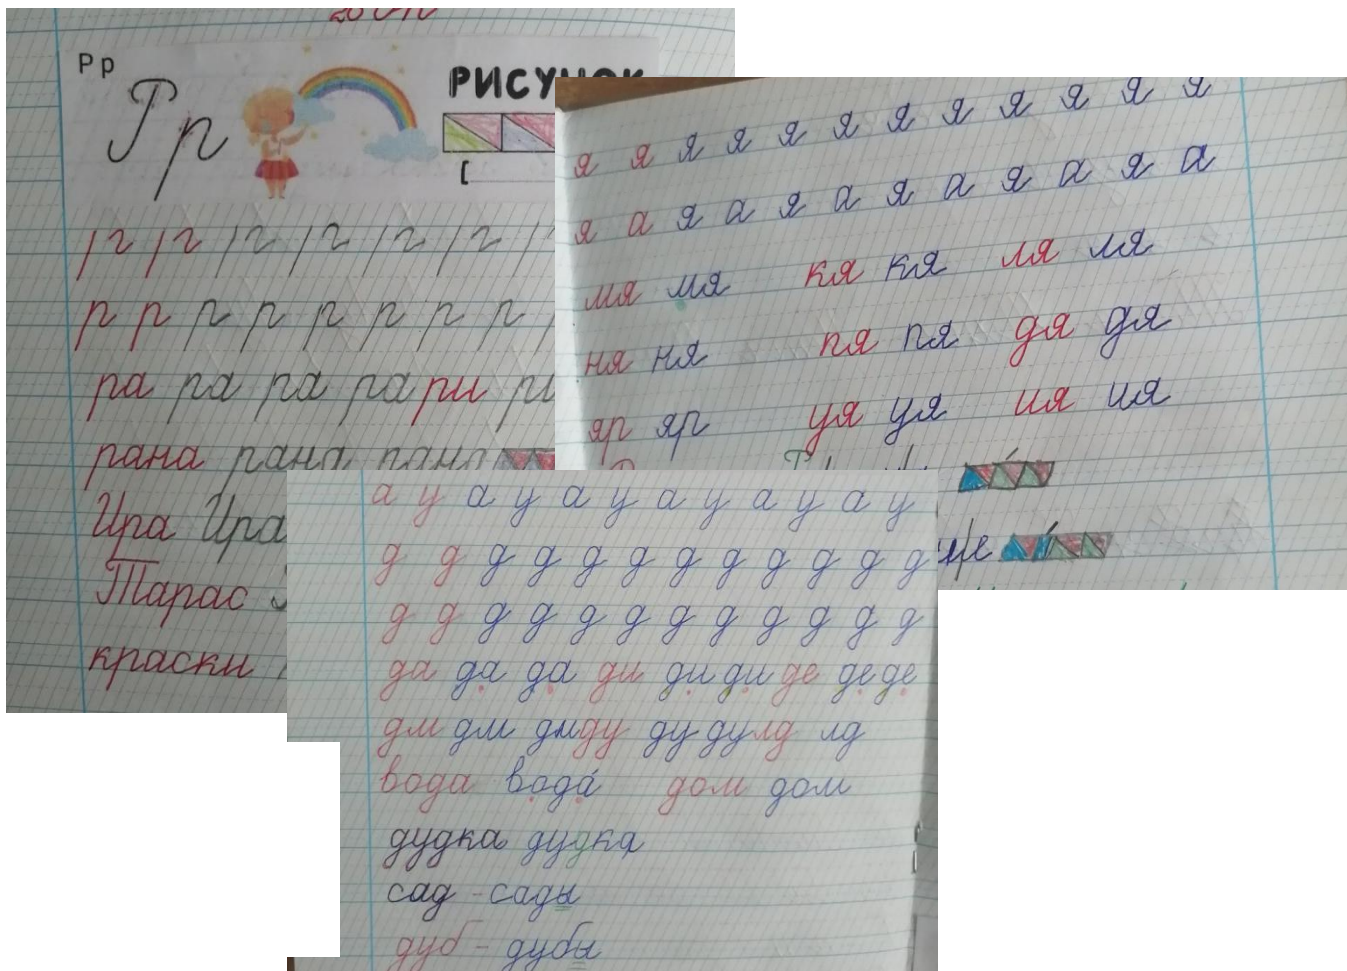 Рр
Рр РИСУНОК
[
р р р р р р р р
ра ра ра ра ри
рана рана рана
Ира Ира
Тарас
краски
я я я я я я я я я я я я
я а я а я а я а я а я а
мя мя кя кя ля ля
ня ня пя пя дя дя
яр яр уя уя ия ия
а у а у а у а у а у а у
д д д д д д д д д д д д
д д д д д д д д д д д д
да да да ди ди ди де де де
дм дм дм ду ду ду лд лд
вода вода́ дом дом
дудка дудка
сад - сады
дуб - дубы